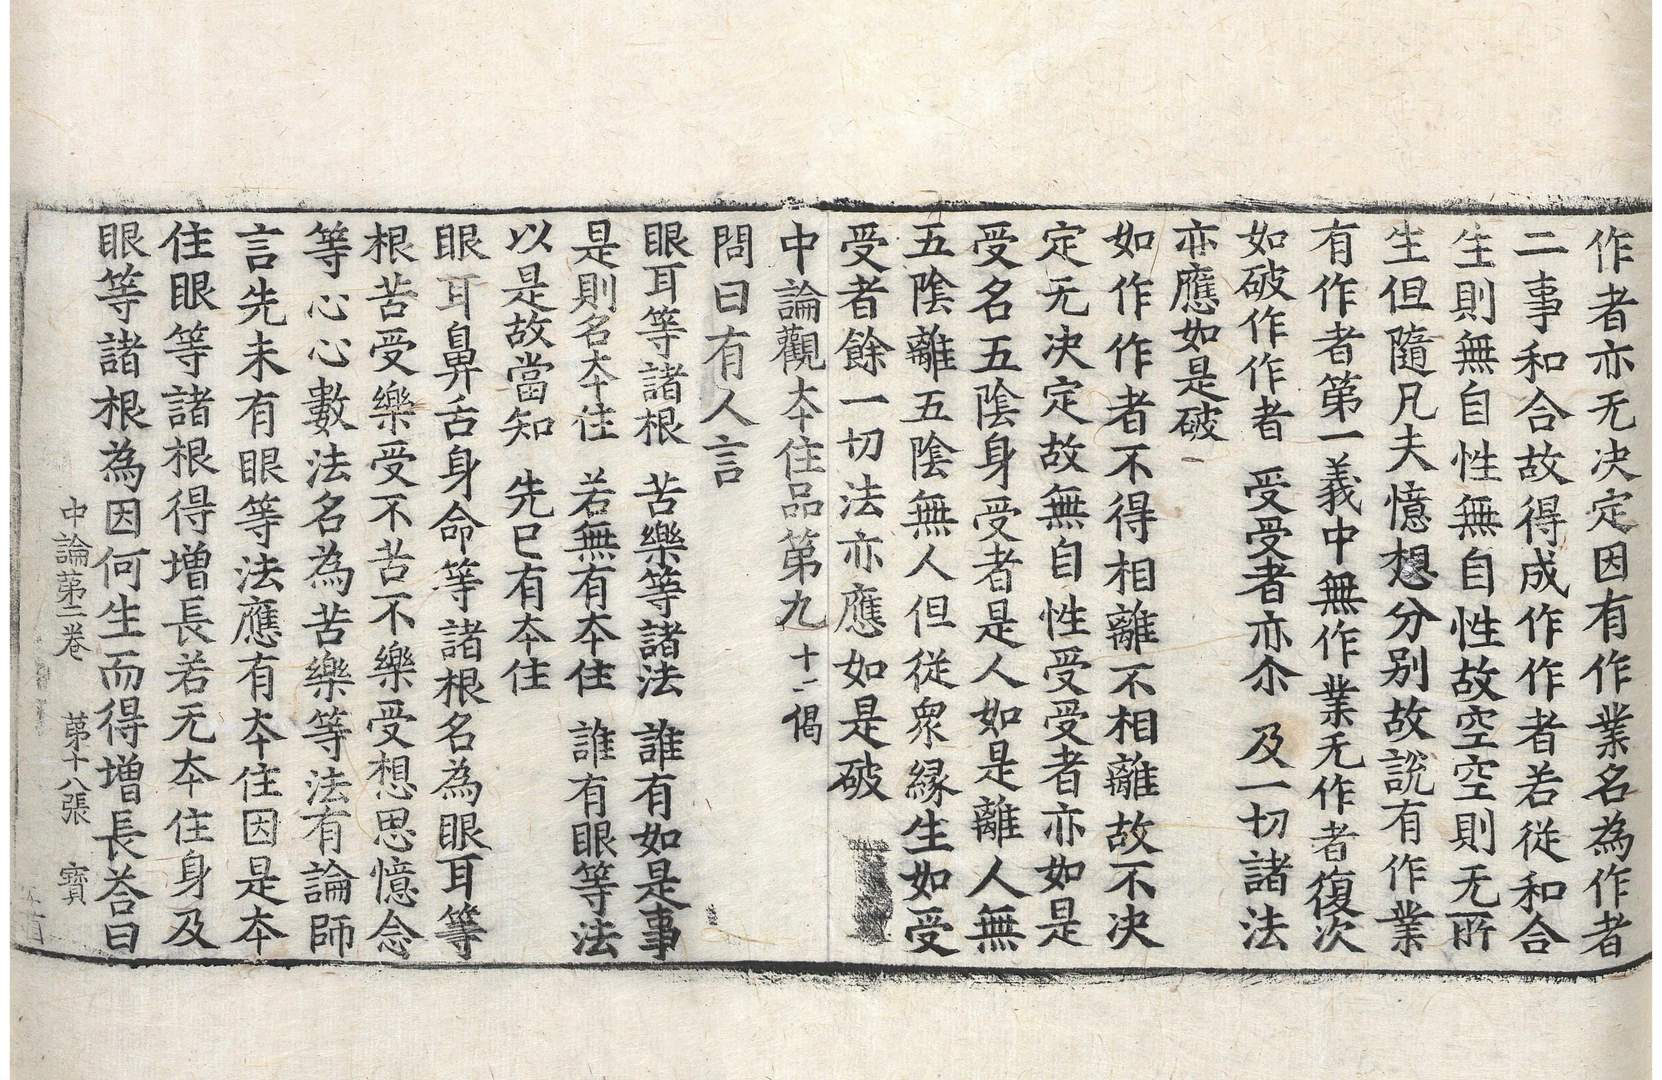 作者亦无決定因有作業名為作者
二事和合故得成作作者若從和合
生則無自性無自性故空空則无所
生但隨凡夫憶想分別故說有作業
有作者第一義中無作業无作者復次
如破作作者　受受者亦尒　及一切諸法
亦應如是破
如作作者不得相離不相離故不決
定无決定故無自性受受者亦如是
受名五陰身受者是人如是離人無
五陰離五陰無人但從衆緣生如受
受者餘一切法亦應如是破
中論觀夲住品第九 十二偈
問曰有人言
眼耳等諸根　苦樂等諸法　誰有如是事
是則名夲住　若無有夲住　誰有眼等法
以是故當知　先已有夲住
眼耳鼻舌身命等諸根名為眼耳等
根苦受樂受不苦不樂受想思憶念
等心心數法名為苦樂等法有論師
言先未有眼等法應有夲住因是夲
住眼等諸根得增長若无夲住身及
眼等諸根為因何生而得增長荅曰
中論第二卷　第十八張　寳